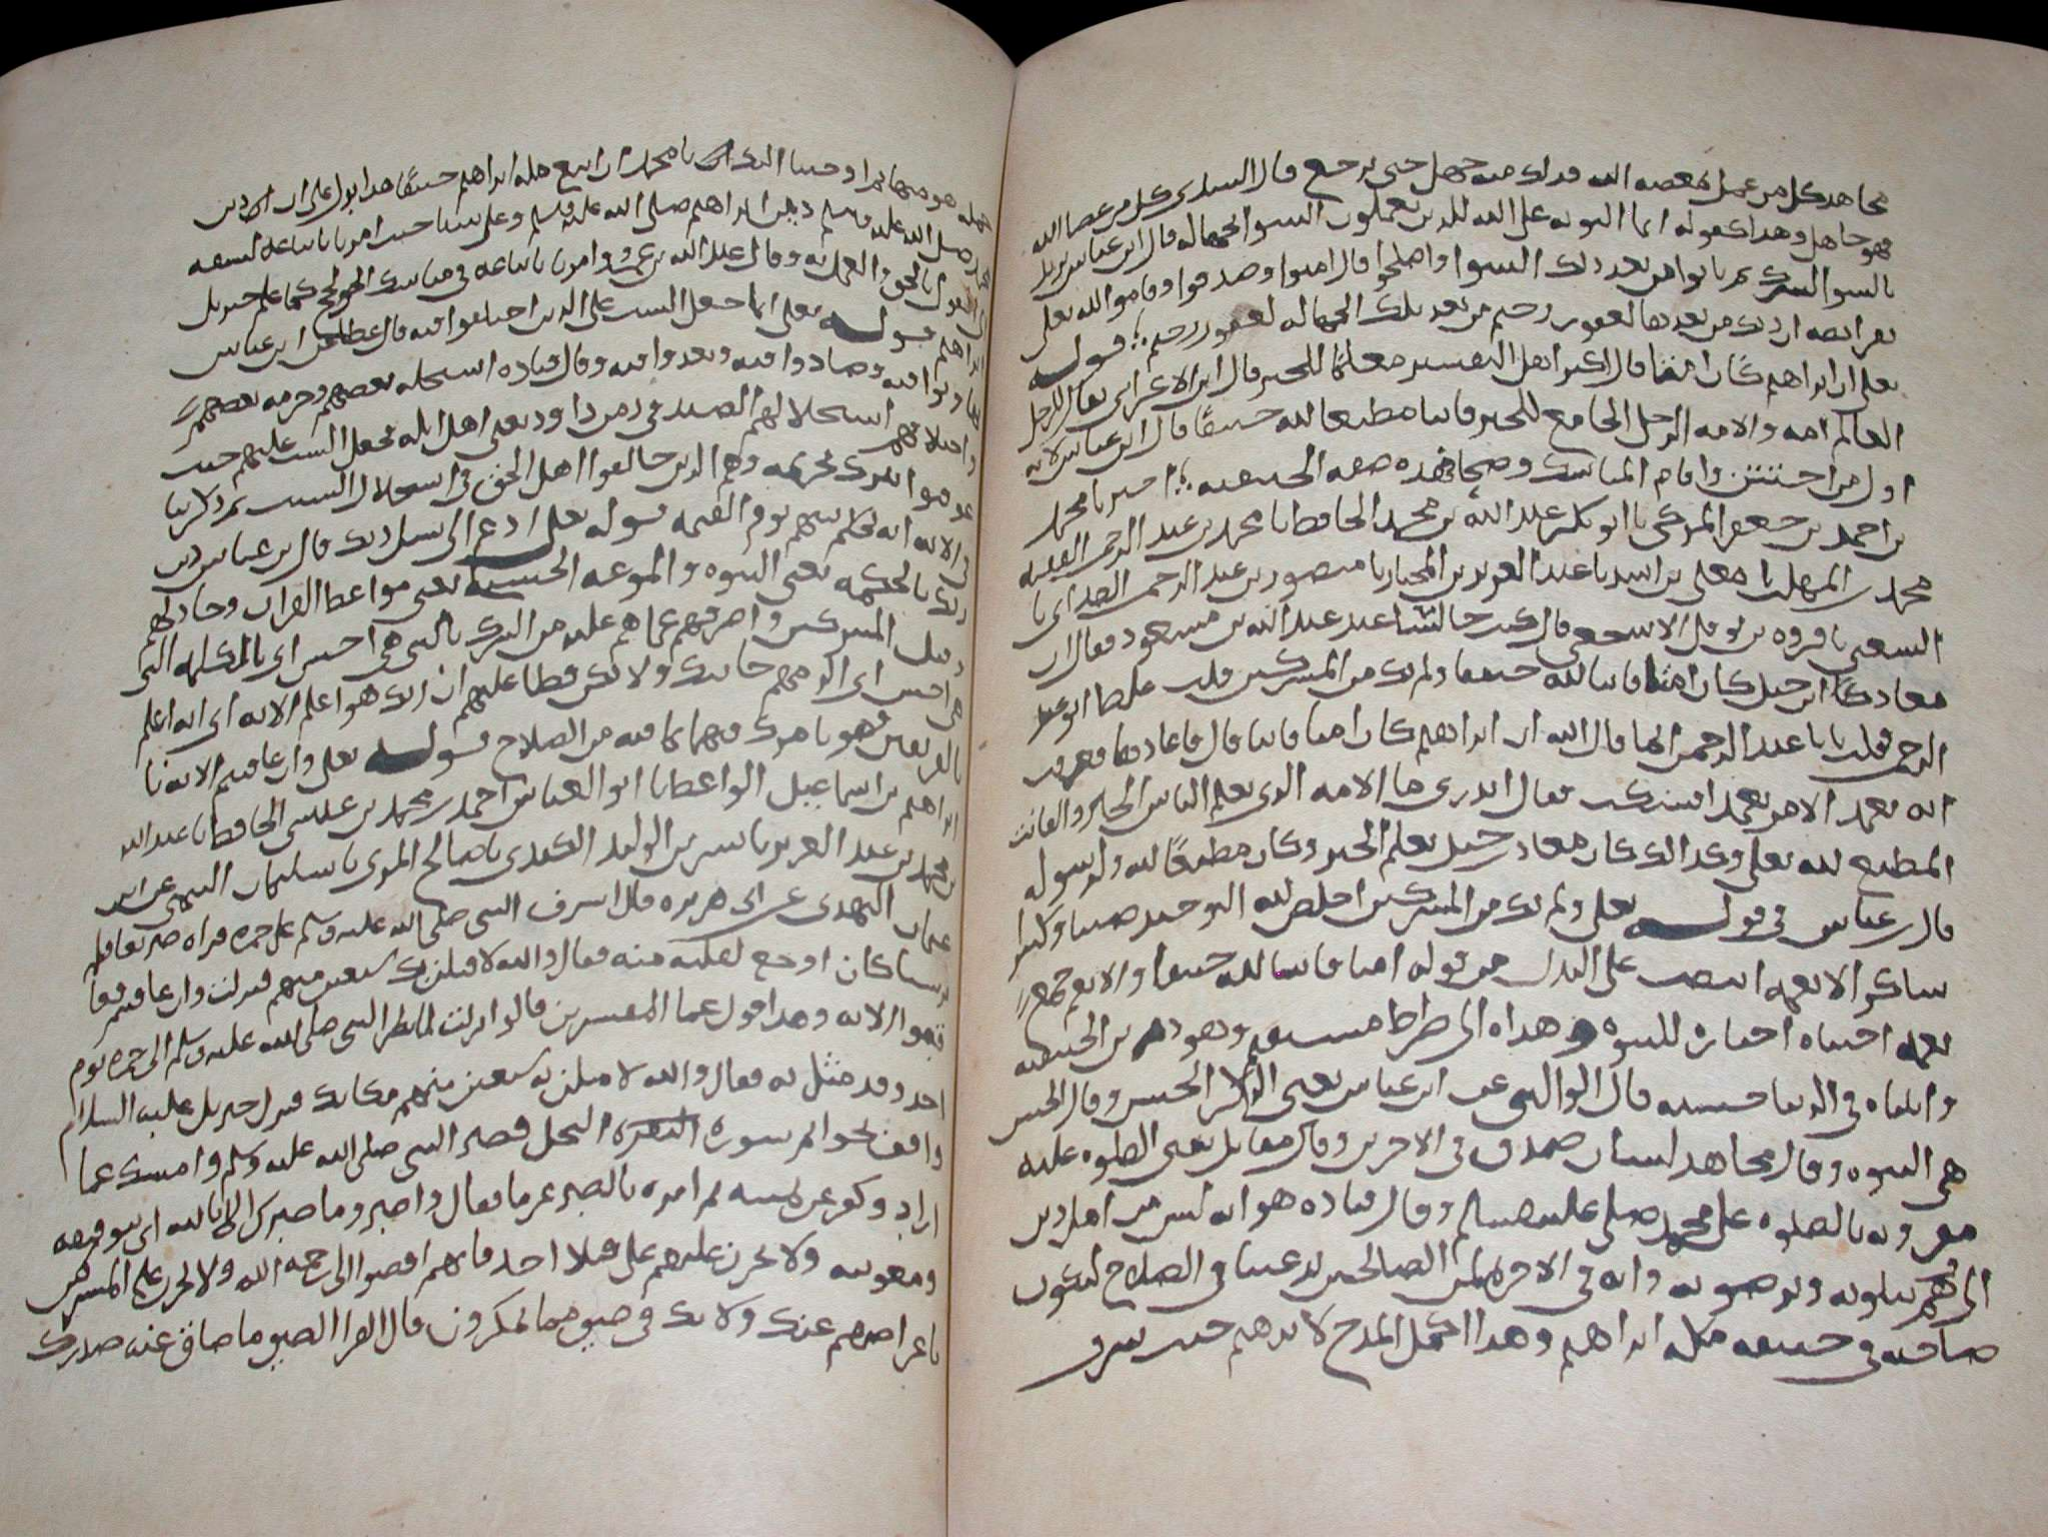 مجاهد كل من عمل بمعصيه الله فذلك منه جهل حتى يرجع قال السدي كل من عصا الله
فهو جاهل وهذا كقوله انما التوبه على الله للذين يعملون السوا بجهاله قال ابن عباس يريد
بالسوا الشرك ثم تابوا من بعد ذلك السوا واصلحوا قال امنوا وصدقوا وقاموا لله تعلى
بفرائضه ان ربك من بعدها لغفور رحيم من بعد تلك الجهاله لغفور رحيم قوله
تعلى ان ابراهيم كان امة قال اكثر اهل التفسير معلمًا للخير قال ابن الاعرابي يقال للرجل
العالم امه والامه الرجل الجامع للخير قانتا مطيعا لله حنيفًا قال ابن عباس لانه
اول من اختتن واقام المناسك وضحا وهذه صفه الحنيفيه اخبرنا محمد
بن احمد بن جعفر المزكي نا ابو بكر عبد الله بن محمد الحافظ نا محمد بن عبد الرحمن الفقيه
محمد بن المهلب نا معلى بن اسد نا عبد العزيز بن المختار نا منصور بن عبد الرحمن الغداني نا
الشعبي نا فروه بن نوفل الاشجعي قال كنت جالسًا عند عبد الله بن مسعود فقال ان
معاذ بن جبل كان امة قانتا لله حنيفا ولم يك من المشركين قلت غلط ابو عبد
الرحمن فقلت يابا عبد الرحمن انما قال الله ان ابراهيم كان امة قانتا قال فاعادها فعرفت
انه تعمد الامر تعمدا فسكت فقال اتدري ما الامه الذي يعلم الناس الخير والقانت
المطيع لله تعلى وكذلك كان معاذ بن جبل يعلم الخير وكان مطيعًا لله ولرسوله
قال بن عباس في قوله تعلى ولم يك من المشركين اخلص لله التوحيد صبيا وكبيرا
شاكرا لانعمه انتصب على البدل من قوله امة قانتا لله حنيفا والانعم جمع
نعمه اجتباه اختاره للنبوه وهداه الى صراط مستقيم وهو دين الحنيفيه
واتيناه في الدنيا حسنه قال الوالبي عن ابن عباس يعني الذكر الحسن وقال الحسن
هي النبوه وقال مجاهد لسان صدق في الاخرين وقال مقاتل يعني الصلوه عليه
مقرونه بالصلوه على محمد صلى عليه وسلم وقال قتاده هو انه ليس من اهل دين
الا وهم يتلونه ويرضونه وانه في الاخره لمن الصالحين ترغيبا في الصلاح ليكون
صاحبه في جنبه مثل ابراهيم وهذا اكمل المدح لابرهيم حيث شرف
جمله هو منها ثم اوحينا اليك اي يا محمد ان اتبع مله ابراهيم حنيفًا هذا يدل على ان دين
محمد صلى الله عليه وسلم دين ابراهيم صلى الله عليه وسلم وعلى نبينا حيث امرنا باتباعه لسبقه
الى القول بالحق والعمل به وقال عبد الله بن عمرو امرنا باتباعه في مناسك الحج كما علم جبريل
ابراهيم قوله تعلى انما جعل السبت على الذين اختلفوا فيه قال عطا عن ابن عباس
تهاونوا فيه وصادوا فيه وتعدوا فيه وقال قتاده استحله بعضهم وحرمه بعضهم
واختلافهم استحلالهم الصيد في زمن داود يعني اهل ايله فجعل السبت عليهم حيث
لم تركوا تحريمه وهم الذين خالفوا اهل الحق في استحلال السبت ثم ذكر في
الايه انه يحكم بينهم يوم القيمه قوله تعلى ادع الى سبيل ربك قال بن عباس دين
ربك بالحكمه يعني النبوه والموعظه الحسنه يعني مواعظ القران وجادلهم
المشركين واصرفهم عما هم عليه من الشرك بالتي هي احسن اي بالكلمه التي
هي احسن اي الن لهم جانبك ولا تكن فظا عليهم ان ربك هو اعلم الايه اي انه اعلم
بالفريقين فهو يامرك فيهما بما فيه من الصلاح قوله تعلى وان عاقبتم الايه نا
ابراهيم بن اسماعيل الواعظ نا ابو العباس احمد بن محمد بن عيسى الحافظ نا عبد الله
بن محمد بن عبد العزيز نا بشر بن الوليد الكندي نا صالح المري نا سليمان التيمي عن ابي
عثمان النهدي عن ابي هريره قال اشرف النبي صلى الله عليه وسلم على حمزه فراه صريعا فلم
شيا كان اوجع لقلبه منه فقال والله لاقتلن بك سبعين منهم فنزلت وان عاقبتم فعا
قبوا الايه وهذا قول عامة المفسرين قالوا نزلت لما نظر النبي صلى الله عليه وسلم الى حمزه يوم
احد وقد مثل به فقال والله لامثلن بسبعين منهم مكانك فنزل جبريل عليه السلام
واقف بخواتم سوره النحل فصبر النبي صلى الله عليه وسلم وامسك عما
اراد وكفر عن يمينه ثم امره بالصبر عزما فقال واصبر وما صبرك الا بالله اي بتوفيقه
ومعونته ولا تحزن عليهم على قتلا احد فانهم افضوا الى رحمه الله ولا تحزن على المشركين
باعراضهم عنك ولا تك في ضيق مما يمكرون قال الفرا الضيق ما ضاق عنه صدرك